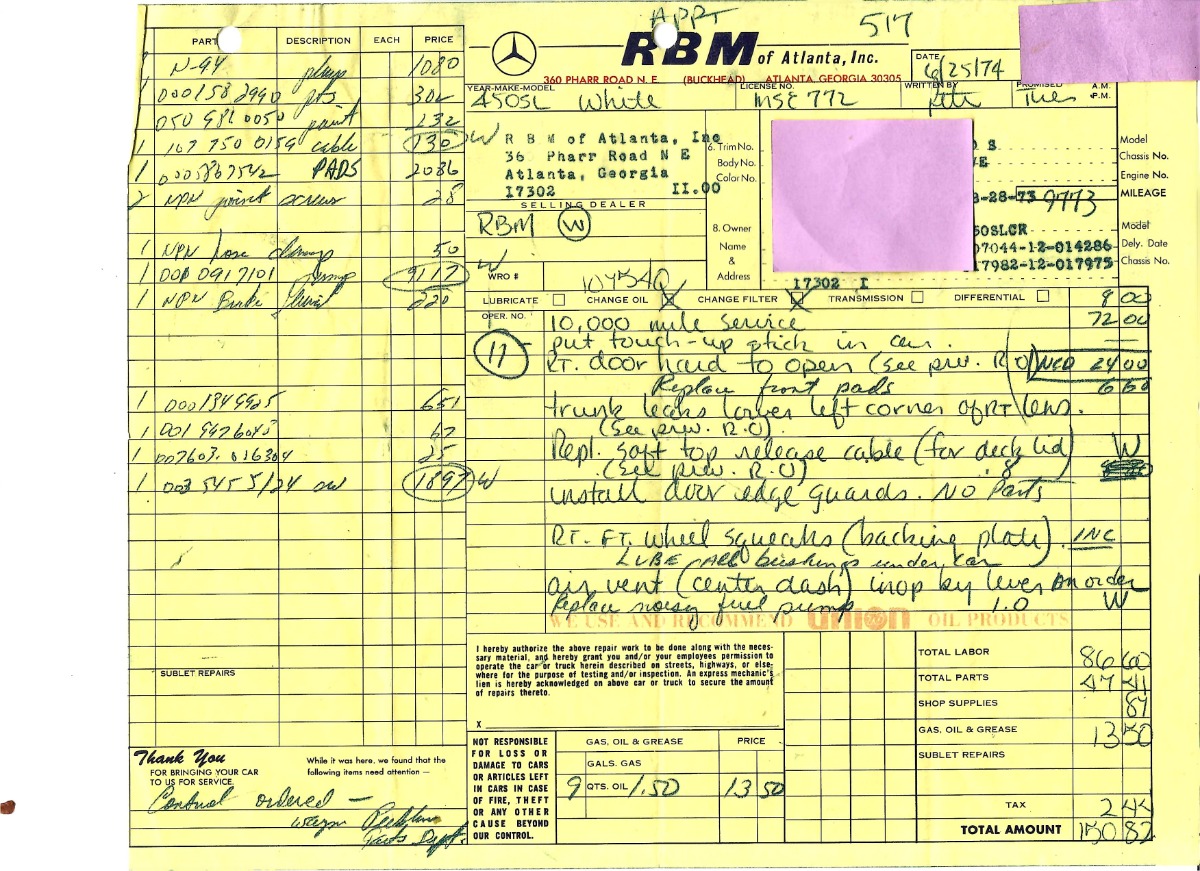 APPT 517
RBM of Atlanta, Inc.
360 PHARR ROAD N. E. (BUCKHEAD) ATLANTA, GEORGIA 30305
DATE 6/25/74
YEAR-MAKE-MODEL LICENSE NO. WRITTEN BY PROMISED A.M. P.M.
450SL White MSE 772 Pete Tues
PART DESCRIPTION EACH PRICE
N-94 plugs 1080
1 000158 2990 pts 302
050 981 0050 joint 232
1 107 750 0159 cable 130 W
1 0005867542 PADS 2086
2 NPN joint screws 28
1 NPN hose clamp 50
1 000 0917101 pump 9117 W
1 NPN Brake fluid 220
1 0001849925 651
1 001 9976045 67
1 007603.016304 25
1 003 545 5124 sw 1897 W
SUBLET REPAIRS
R B M of Atlanta, Inc
36 Pharr Road N E
Atlanta, Georgia
17302 II.00
SELLING DEALER
RBM W
WRO # 104540
6. Trim No.
Body No.
Color No.
8. Owner
Name
&
Address
D S
VE
-28-73 9773
50SLCR
07044-12-014286
17982-12-017975
17302 I
Model
Chassis No.
Engine No.
MILEAGE
Model
Dely. Date
Chassis No.
LUBRICATE CHANGE OIL CHANGE FILTER TRANSMISSION DIFFERENTIAL 8 00
OPER. NO. 10,000 mile service 72 00
put touch-up stick in car. —
11 RT. door hard to open (see prev. R.O) NCO 24 00
Replace front pads 6 60
trunk leaks lower left corner of RT lens.
(see prev. R.O).
Repl. soft top release cable (for deck lid) W
(see prev. R.O) .8
install door edge guards. NO Parts
RT. FT. wheel squeaks (backing plate). INC
LUBE ALL bushings under car
air vent (center dash) inop by lever on order
Replace noisy fuel pump 1.0 W
WE USE AND RECOMMEND union OIL PRODUCTS
I hereby authorize the above repair work to be done along with the neces-
sary material, and hereby grant you and/or your employees permission to
operate the car or truck herein described on streets, highways, or else-
where for the purpose of testing and/or inspection. An express mechanic's
lien is hereby acknowledged on above car or truck to secure the amount
of repairs thereto.
X
NOT RESPONSIBLE
FOR LOSS OR
DAMAGE TO CARS
OR ARTICLES LEFT
IN CARS IN CASE
OF FIRE, THEFT
OR ANY OTHER
CAUSE BEYOND
OUR CONTROL.
GAS, OIL & GREASE PRICE
GALS. GAS
9 QTS. OIL 1.50 13 50
TOTAL LABOR 86 60
TOTAL PARTS 47 41
SHOP SUPPLIES 87
GAS, OIL & GREASE 13 50
SUBLET REPAIRS
TAX 2 44
TOTAL AMOUNT 150 82
Thank You
FOR BRINGING YOUR CAR
TO US FOR SERVICE.
While it was here, we found that the
following items need attention —
Control ordered —
Parts Dept.